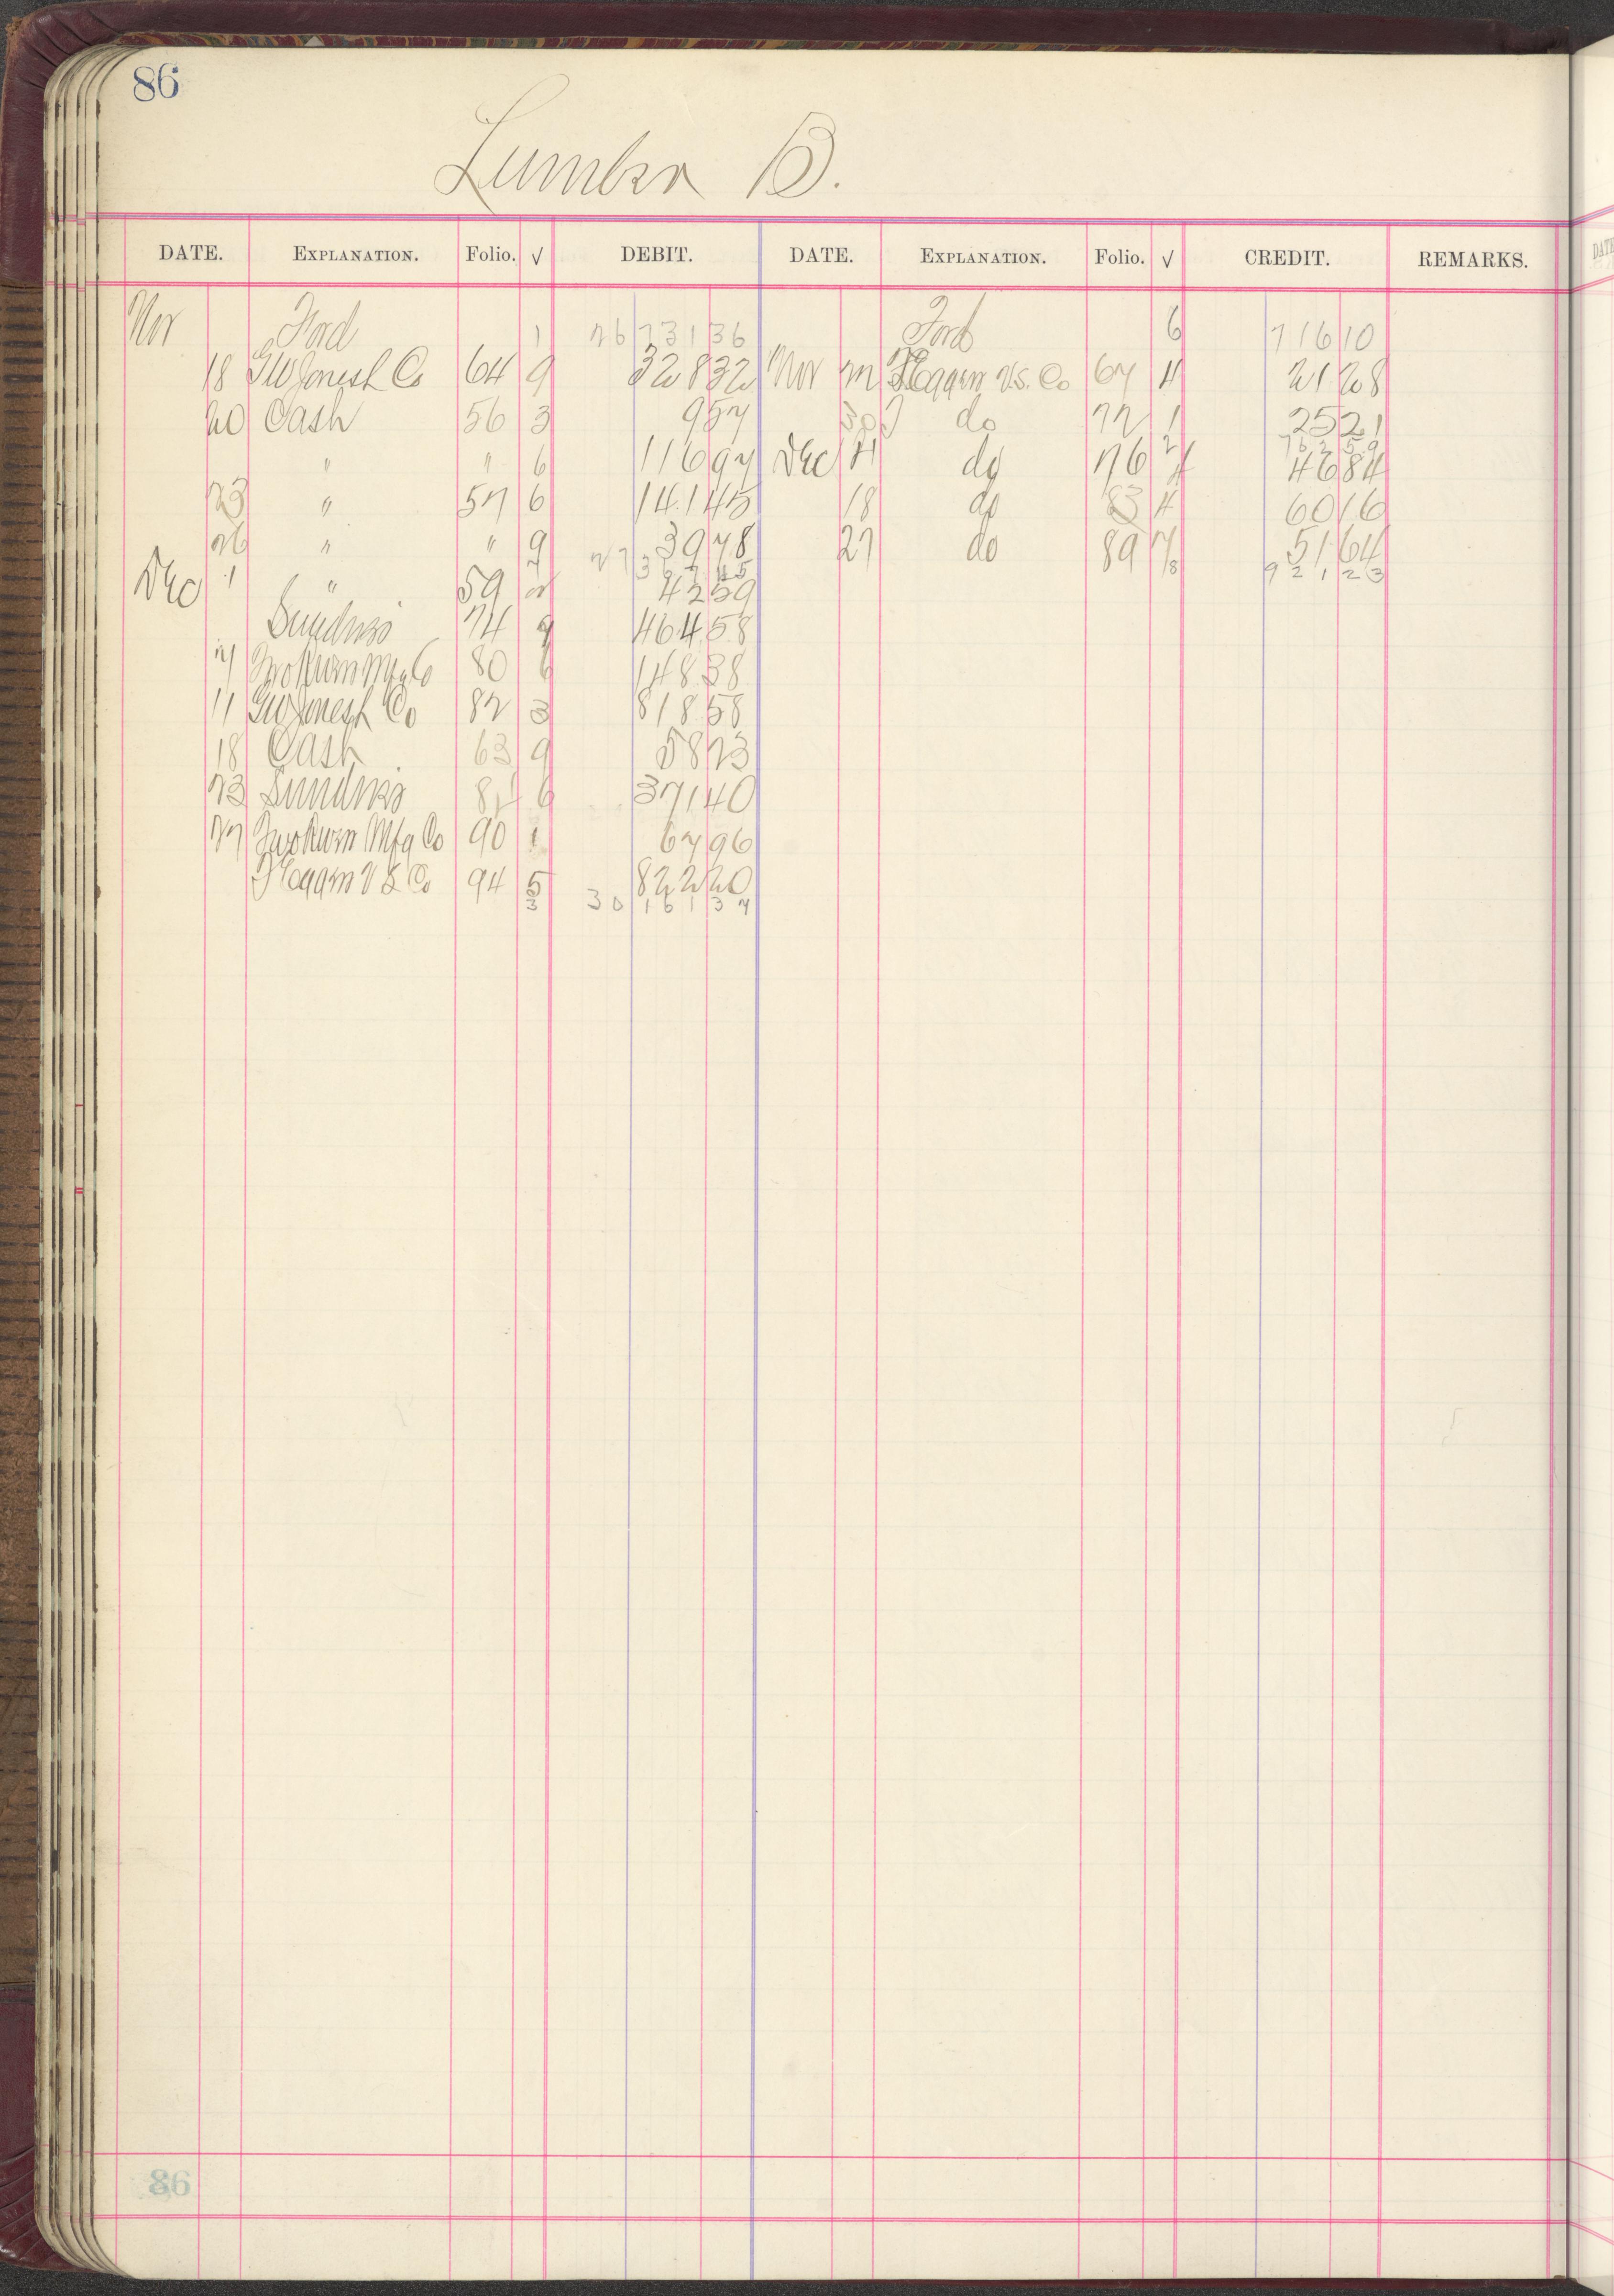 86
Lumber B.
DATE. EXPLANATION. Folio. √ DEBIT. DATE. EXPLANATION. Folio. √ CREDIT. REMARKS.
Nov Ford 1 26 731 36 Ford 6 716 10
18 GW Jones L Co 64 9 328 32 Nov 21 Hagen V.S. Co 67 4 21 28
20 Cash 56 3 9 57 30 do 72 1 25 21
2 762 59
" " 6 116 97 Dec 4 do 76 4 46 84
23 " 57 6 141 45 18 do 83 4 60 16
26 " " 9 39 78 27 do 89 7 51 64
7 27 367 45 8 921 23
Dec 1 " 59 2 42 59
Sundries 74 9 464 58
7 Mfg Co 80 6 148 38
11 GW Jones L Co 82 3 818 58
18 Cash 63 9 58 23
23 Sundries 84 6 371 40
27 Mfg Co 90 1 67 96
Hagen V S Co 94 5 822 20
3 30 161 37
86